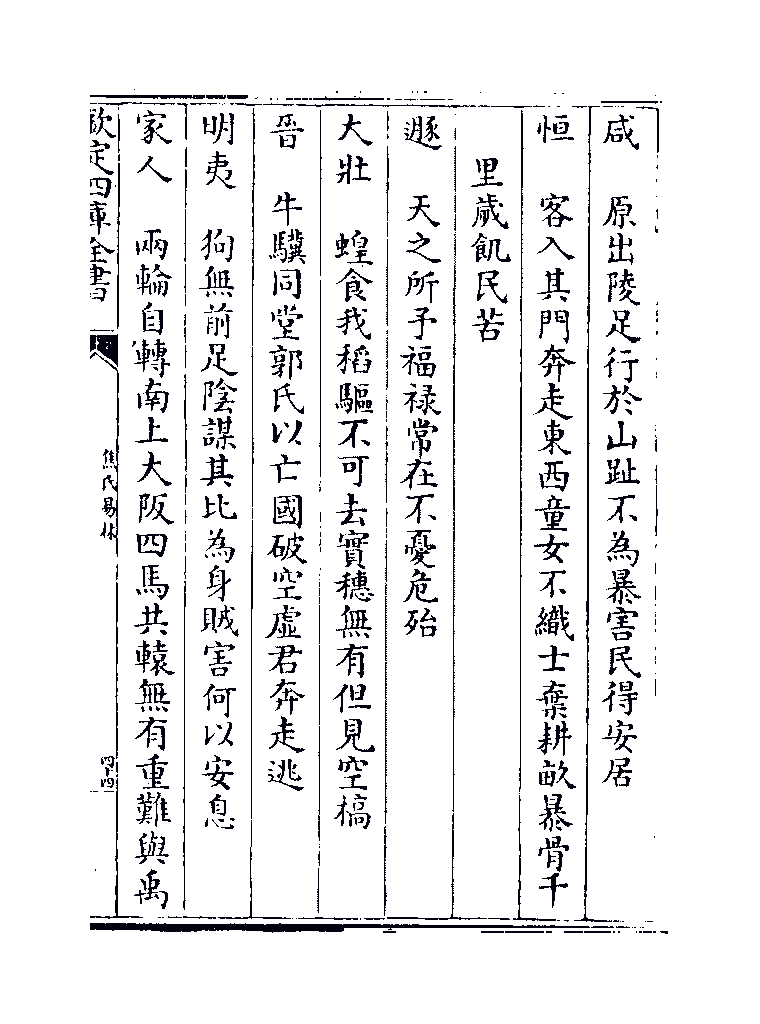 咸　原出陵足行於山趾不為暴害民得安居
恒　客入其門奔走東西童女不織士棄耕畝暴骨千
里歲飢民苦
遯　天之所予福禄常在不憂危殆
大壯　蝗食我稻驅不可去實穗無有但見空槁
晉　牛驥同堂郭氏以亡國破空虛君奔走逃
明夷　狗無前足陰謀其比為身賊害何以安息
家人　兩輪自轉南上大阪四馬共轅無有重難與禹
欽定四庫全書
焦氏易林